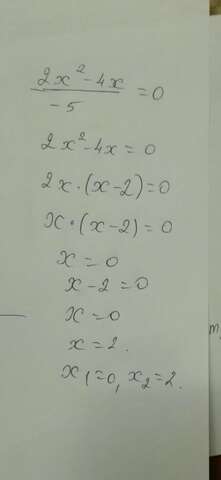 (2x² - 4x) / (-5) = 0
2x² - 4x = 0
2x · (x - 2) = 0
x · (x - 2) = 0
x = 0
x - 2 = 0
x = 0
x = 2.
x₁ = 0, x₂ = 2.
m